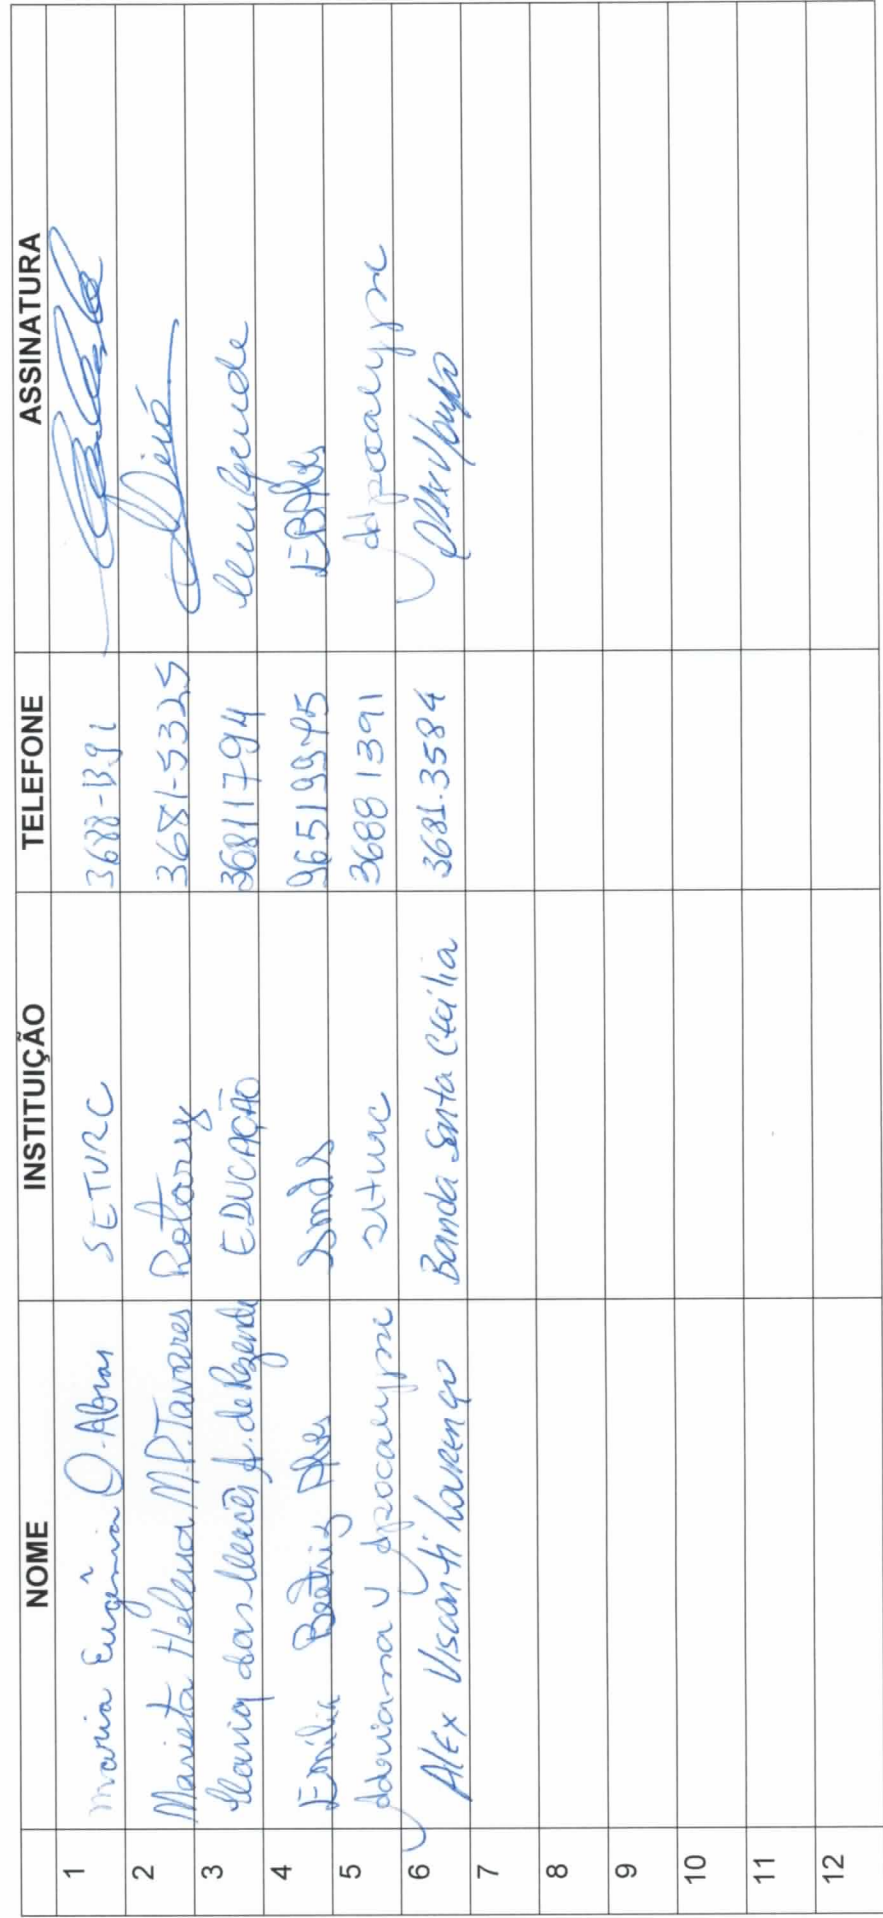 NOME INSTITUIÇÃO TELEFONE ASSINATURA
1 Maria Eugênia O. Abras SETURC 3688-1391
2 Marieta Helena M.P. Tavares Rotary 3681-5325
3 Maria das Mercês A. de Rezende EDUCAÇÃO 36811794
4 Emilia Beatriz Alves smds EBAlves
5 Adriana V Apocalypse seturc 36881391 Apocalypse
6 Alex Visconti Lourenço Banda Santa Cecília 3681.3584
7
8
9
10
11
12